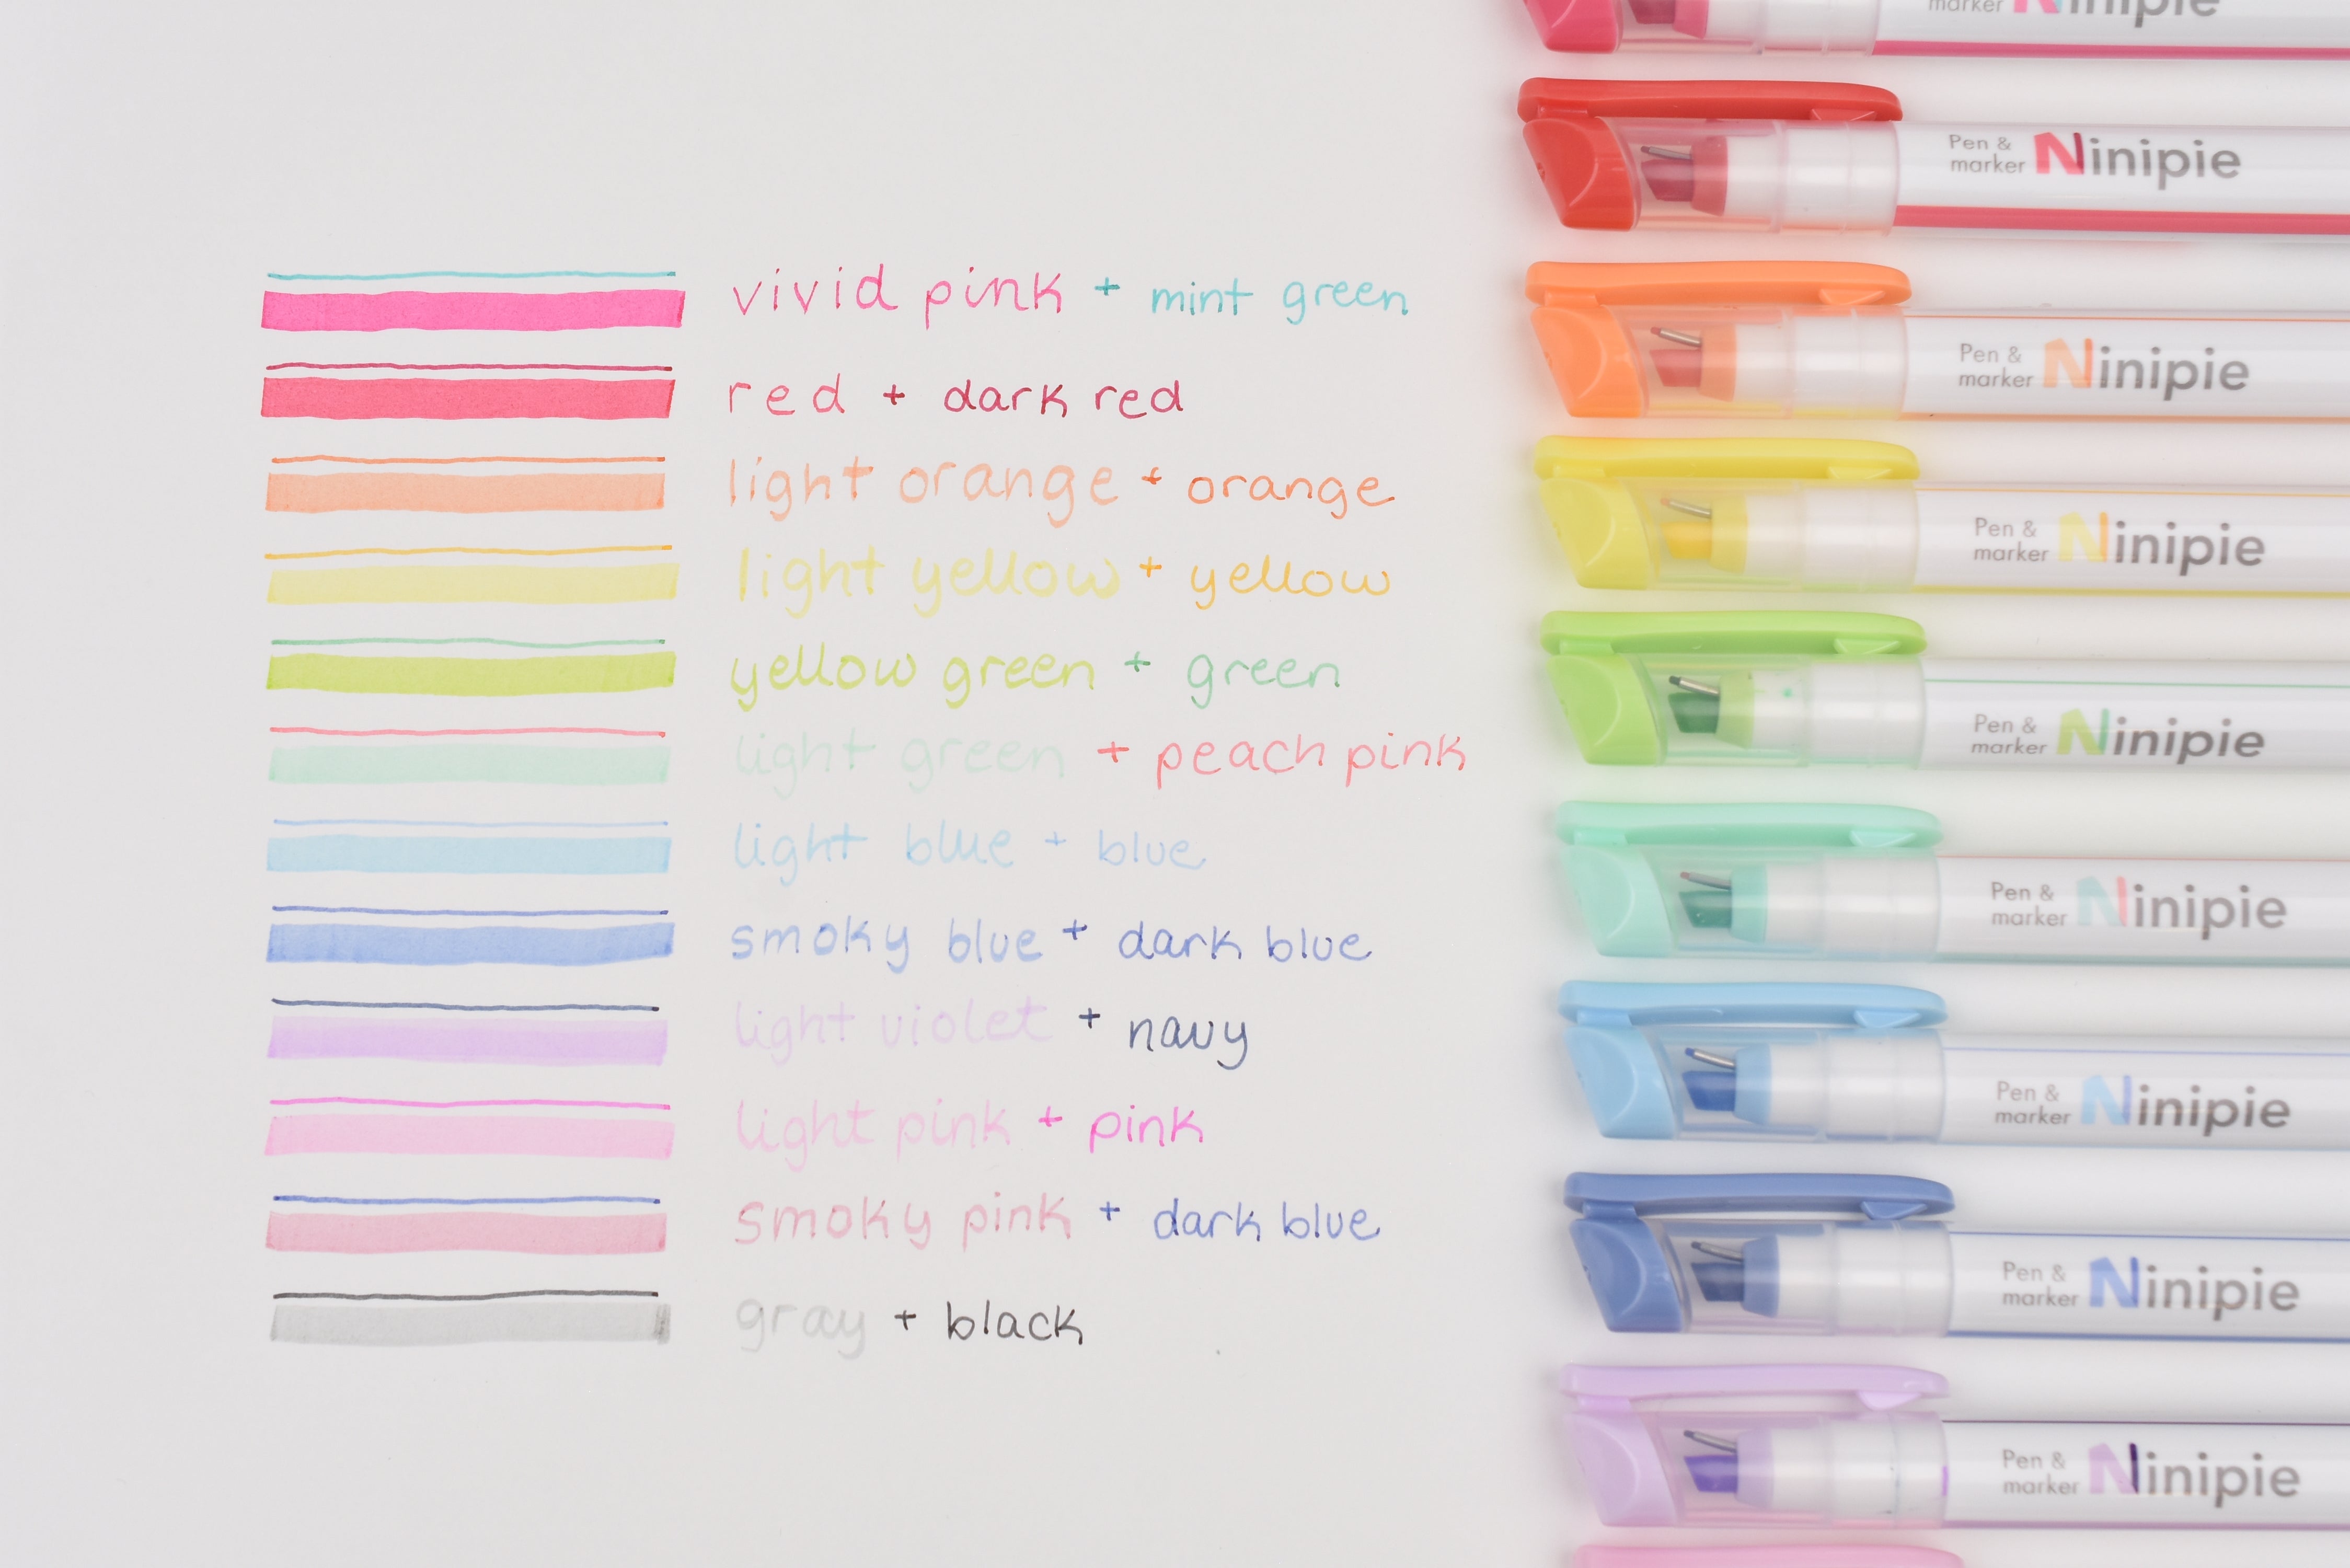 vivid pink + mint green
red + dark red
light orange + orange
light yellow + yellow
yellow green + green
light green + peach pink
light blue + blue
smoky blue + dark blue
light violet + navy
light pink + pink
smoky pink + dark blue
gray + black
marker Ninipie
Pen & marker Ninipie
Pen & marker Ninipie
Pen & marker Ninipie
Pen & marker Ninipie
Pen & marker Ninipie
Pen & marker Ninipie
Pen & marker Ninipie
Pen & marker Ninipie